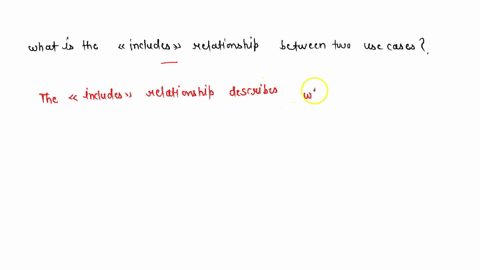 what is the << includes >> relationship between two use cases ?.
The << includes >> relationship describes w